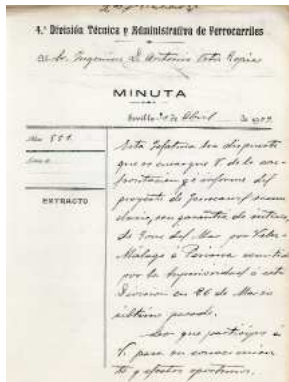 4.ª División Técnica y Administrativa de Ferrocarriles
Ingeniero D. Antonio
MINUTA
Sevilla 10 de Abril de 1909
Núm. 551
EXTRACTO
Esta Jefatura ha dispuesto
que se encargue V. de la con-
frontación é informe del
proyecto de ferrocarril secun-
dario, con garantía de interés,
de Torre del Mar por Velez
Málaga á Periana remitido
por la Superioridad á esta
División en 26 de Marzo
último pasado.
Lo que participo á
V. para su conocimien
to y efectos oportunos.